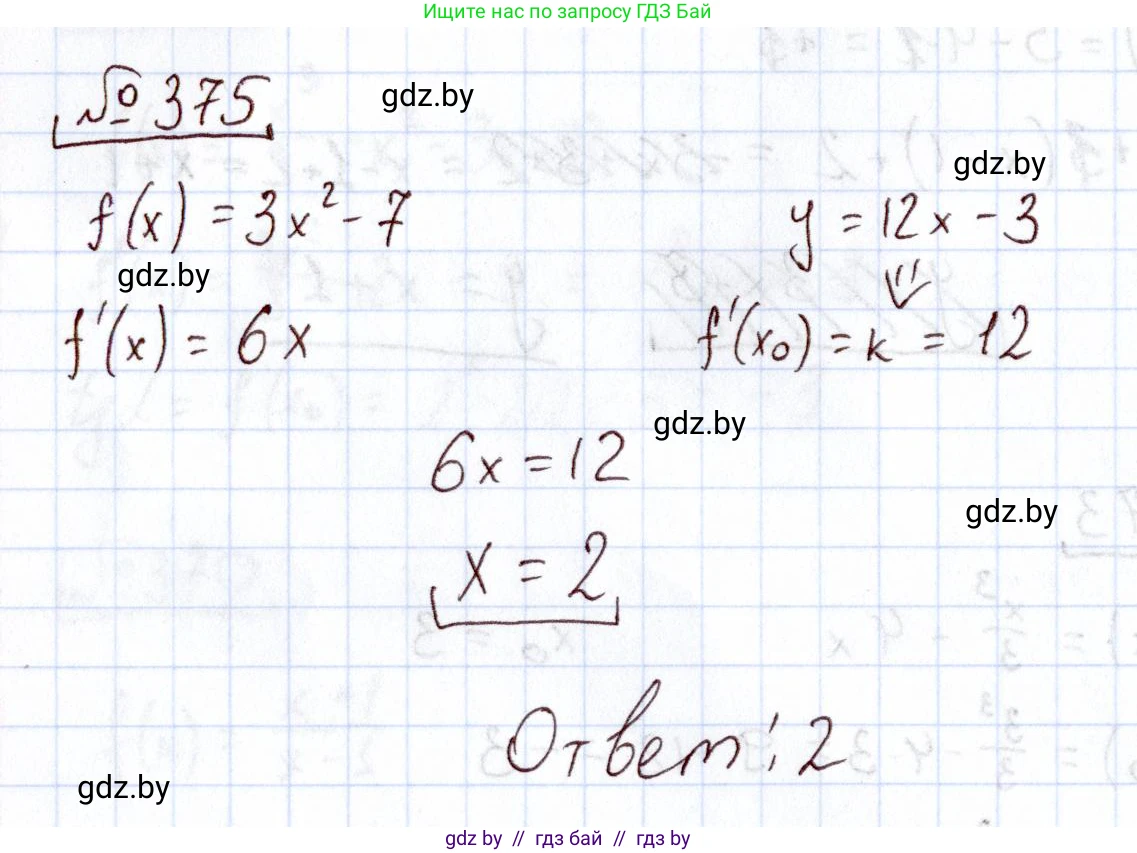 Ищите нас по запросу ГДЗ Бай
№ 375
gdz.by
gdz.by
f(x) = 3x² - 7
y = 12x - 3
gdz.by
⇓
f'(x) = 6x
f'(x₀) = k = 12
gdz.by
6x = 12
gdz.by
x = 2
Ответ: 2
gdz.by
gdz by // гдз бай // гдз by